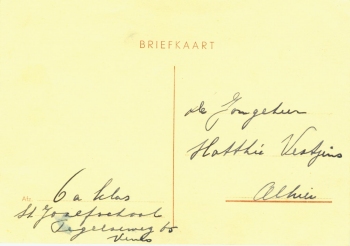 BRIEFKAART
de Jongeheer
Matthié Vestjens
Alhier
Afz.
6a klas
St Josefschool
Tegelseweg 65
Venlo